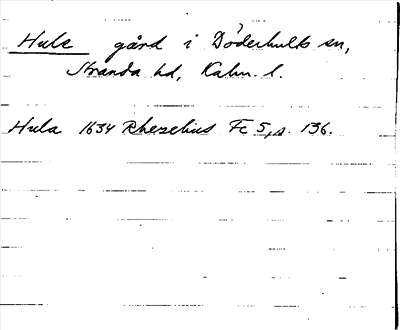 Hule gård i Döderhults sn,
Stranda hd, Kalm. l.
Hula 1634 Rhezelius Fc 5, s. 136.